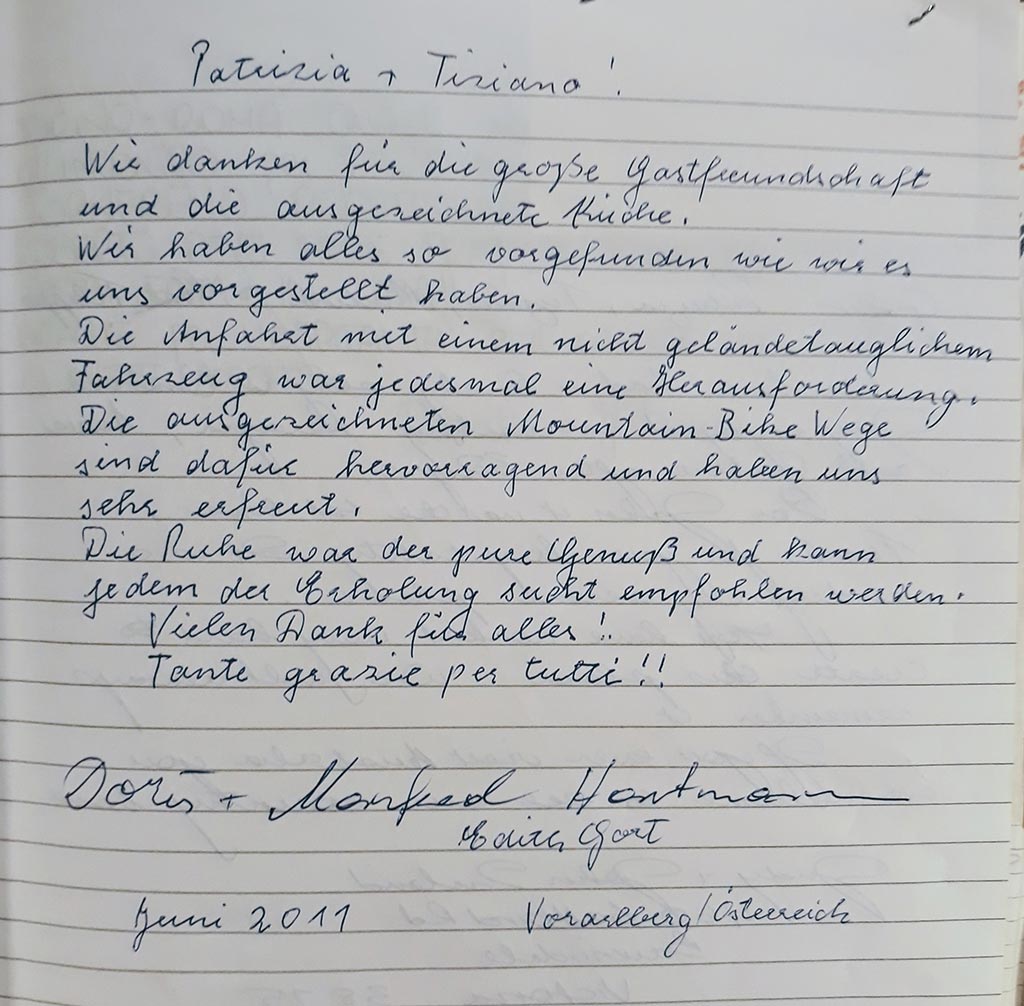 Patrizia + Tiziano!
Wir danken für die große Gastfreundschaft
und die ausgezeichnete Küche.
Wir haben alles so vorgefunden wie wir es
uns vorgestellt haben.
Die Anfahrt mit einem nicht geländetauglichem
Fahrzeug war jedesmal eine Herausforderung.
Die ausgezeichneten Mountain-Bike Wege
sind dafür hervorragend und haben uns
sehr erfreut.
Die Ruhe war der pure Genuß und kann
jedem der Erholung sucht empfohlen werden.
Vielen Dank für alles!
Tante grazie per tutti!!
Doris + Manfred Hartmann
Edith Gort
Juni 2011 Vorarlberg/Österreich